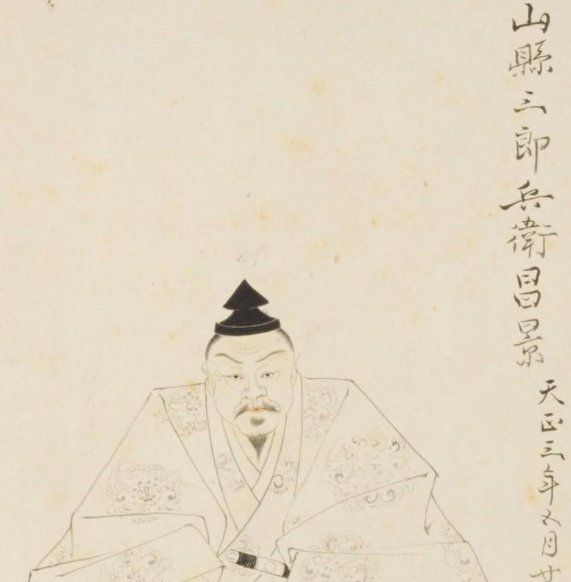 山縣三郎兵衛昌景 天正三年五月廿